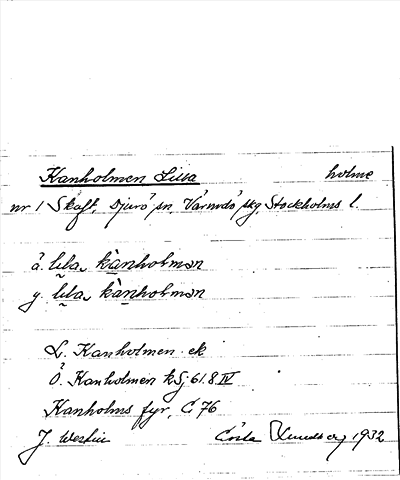 Kanholmen Lilla holme
nr 1 Skåft, Djurö sn, Värmdö skg, Stockholms l.
å. lila kànholmən
y. lila kànholmən
L. Kanholmen ek
Ö. Kanholmen kSj 61.8 IV
Kanholms fyr, C 76
J. Westin Gösta 1932